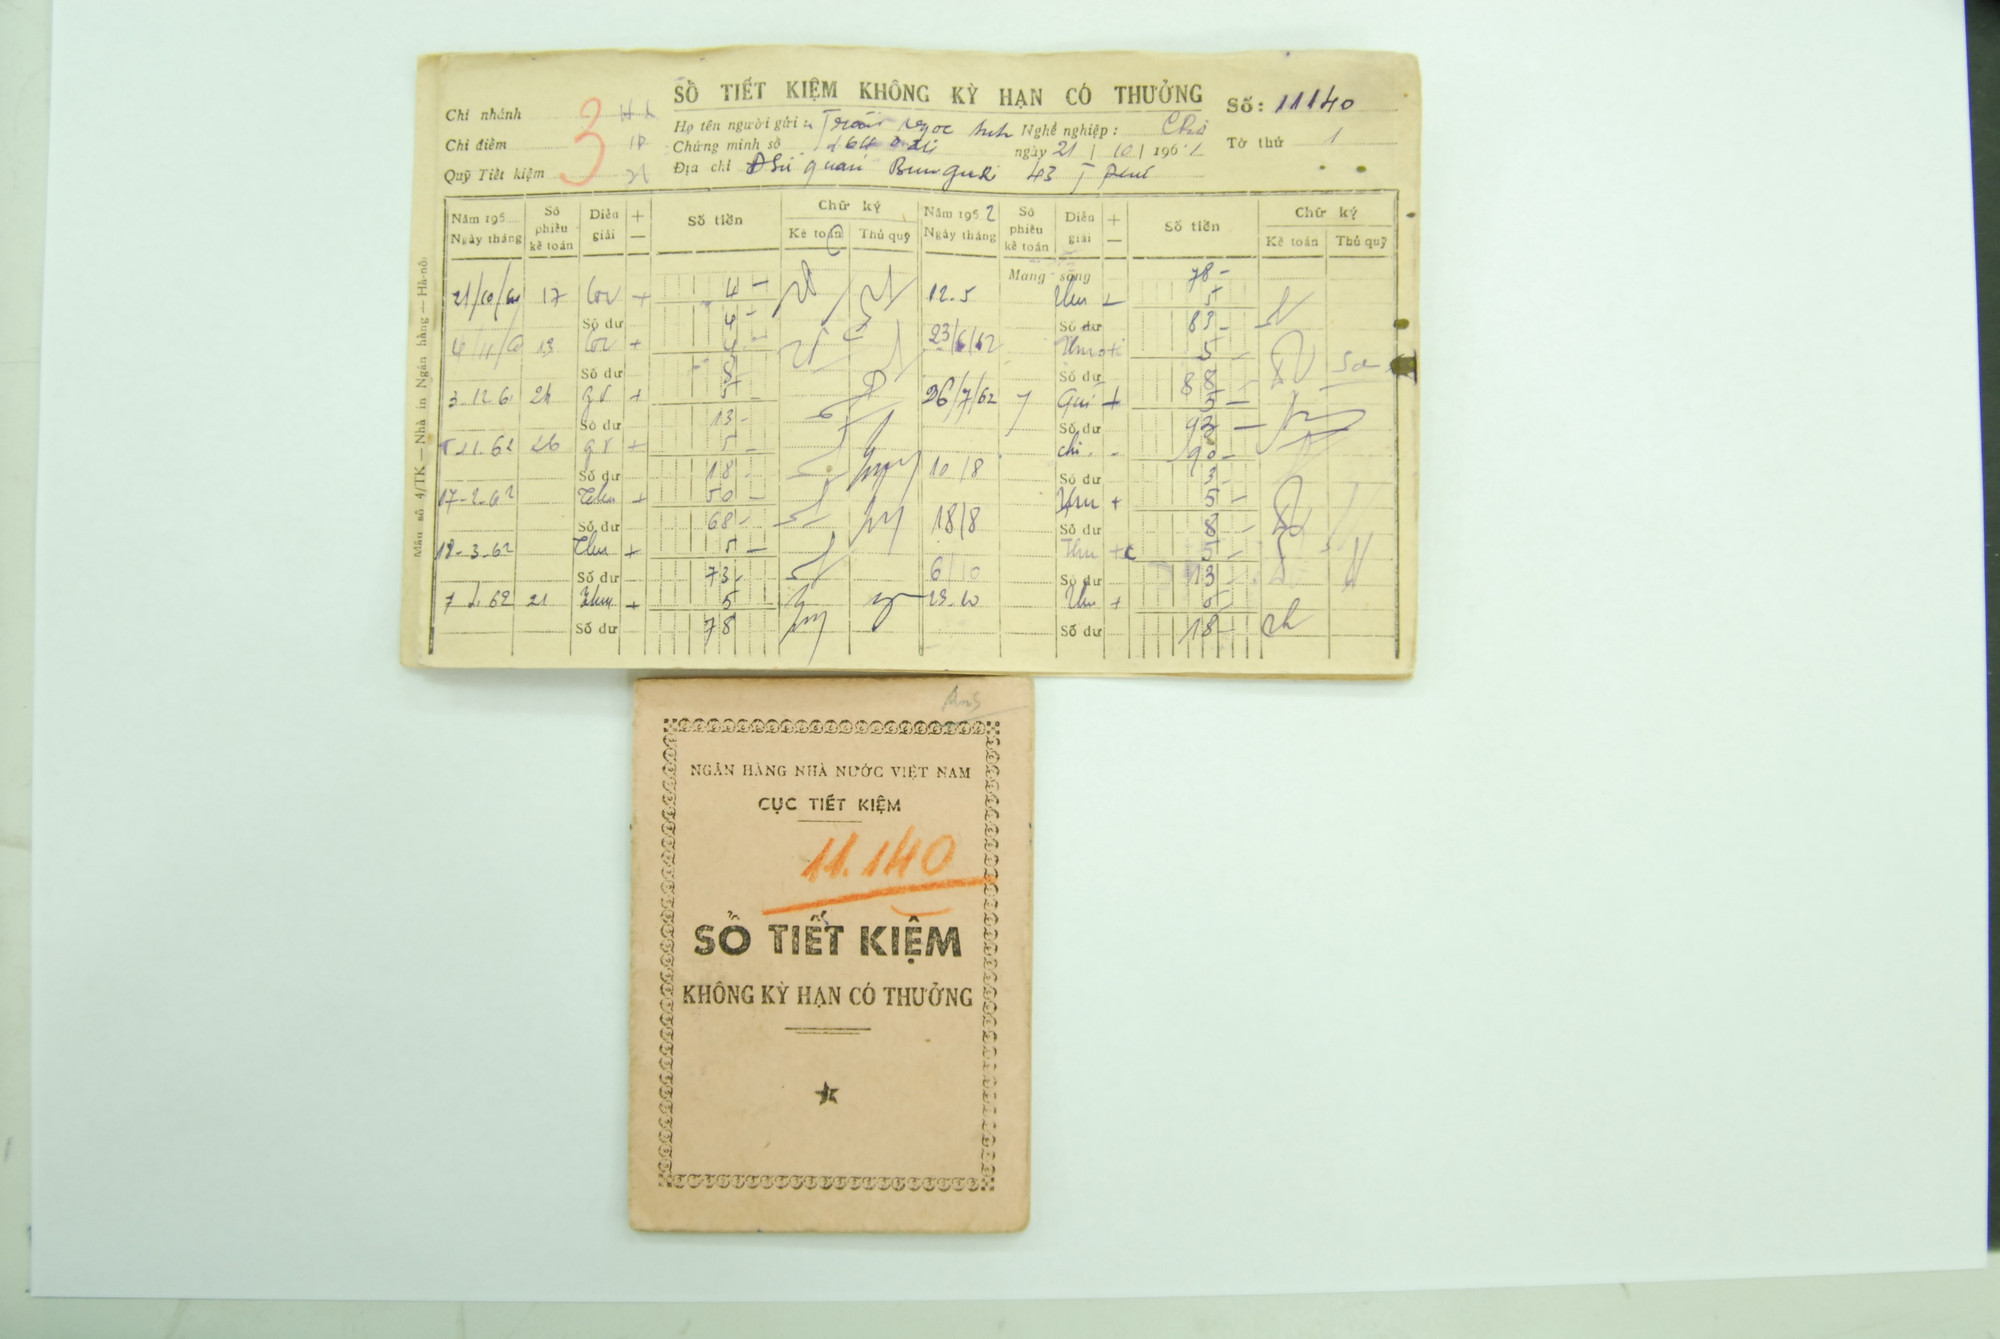 SỔ TIẾT KIỆM KHÔNG KỲ HẠN CÓ THƯỞNG Số: 11140
Chi nhánh
3
Họ tên người gửi: Ngọc Nghề nghiệp:
Chi điếm
Chứng minh số ngày 21 / 10 / 1961 Tờ thứ 1
Quỹ Tiết kiệm
Địa chỉ Đsứ quán Bungari 43 T phú
Mẫu số 4/TK — Nhà in Ngân hàng — Hà-nội
Năm 195 Ngày tháng Số phiếu kế toán Diễn giải + — Số tiền Chữ ký Kế toán Thủ quỹ Năm 1952 Ngày tháng Số phiếu kế toán Diễn giải + — Số tiền Chữ ký Kế toán Thủ quỹ
Mang sang 78 -
21/10/61 17 + 4 - 12.5 Thu + 5
Số dư 4 - Số dư 83 -
13 + 4 - 23/6/62 5 -
Số dư 8 Số dư 88 -
3.12.61 24 gt + 5 - 26/7/62 7 Gửi + 5 -
Số dư 13 - Số dư 93 -
26 gt + 5 - 10/8 chi - 90 -
Số dư 18 - Số dư 3 -
17-2-62 Thu + 50 - 18/8 Thu + 5 -
Số dư 68 - Số dư 8 -
18-3-62 Thu + 5 - 6/10 Thu + 5 -
Số dư 73 - Số dư 13 -
21 Thu + 5 Thu + 5 -
Số dư 78 Số dư 18 -
NGÂN HÀNG NHÀ NƯỚC VIỆT NAM
CỤC TIẾT KIỆM
11.140
SỔ TIẾT KIỆM
KHÔNG KỲ HẠN CÓ THƯỞNG